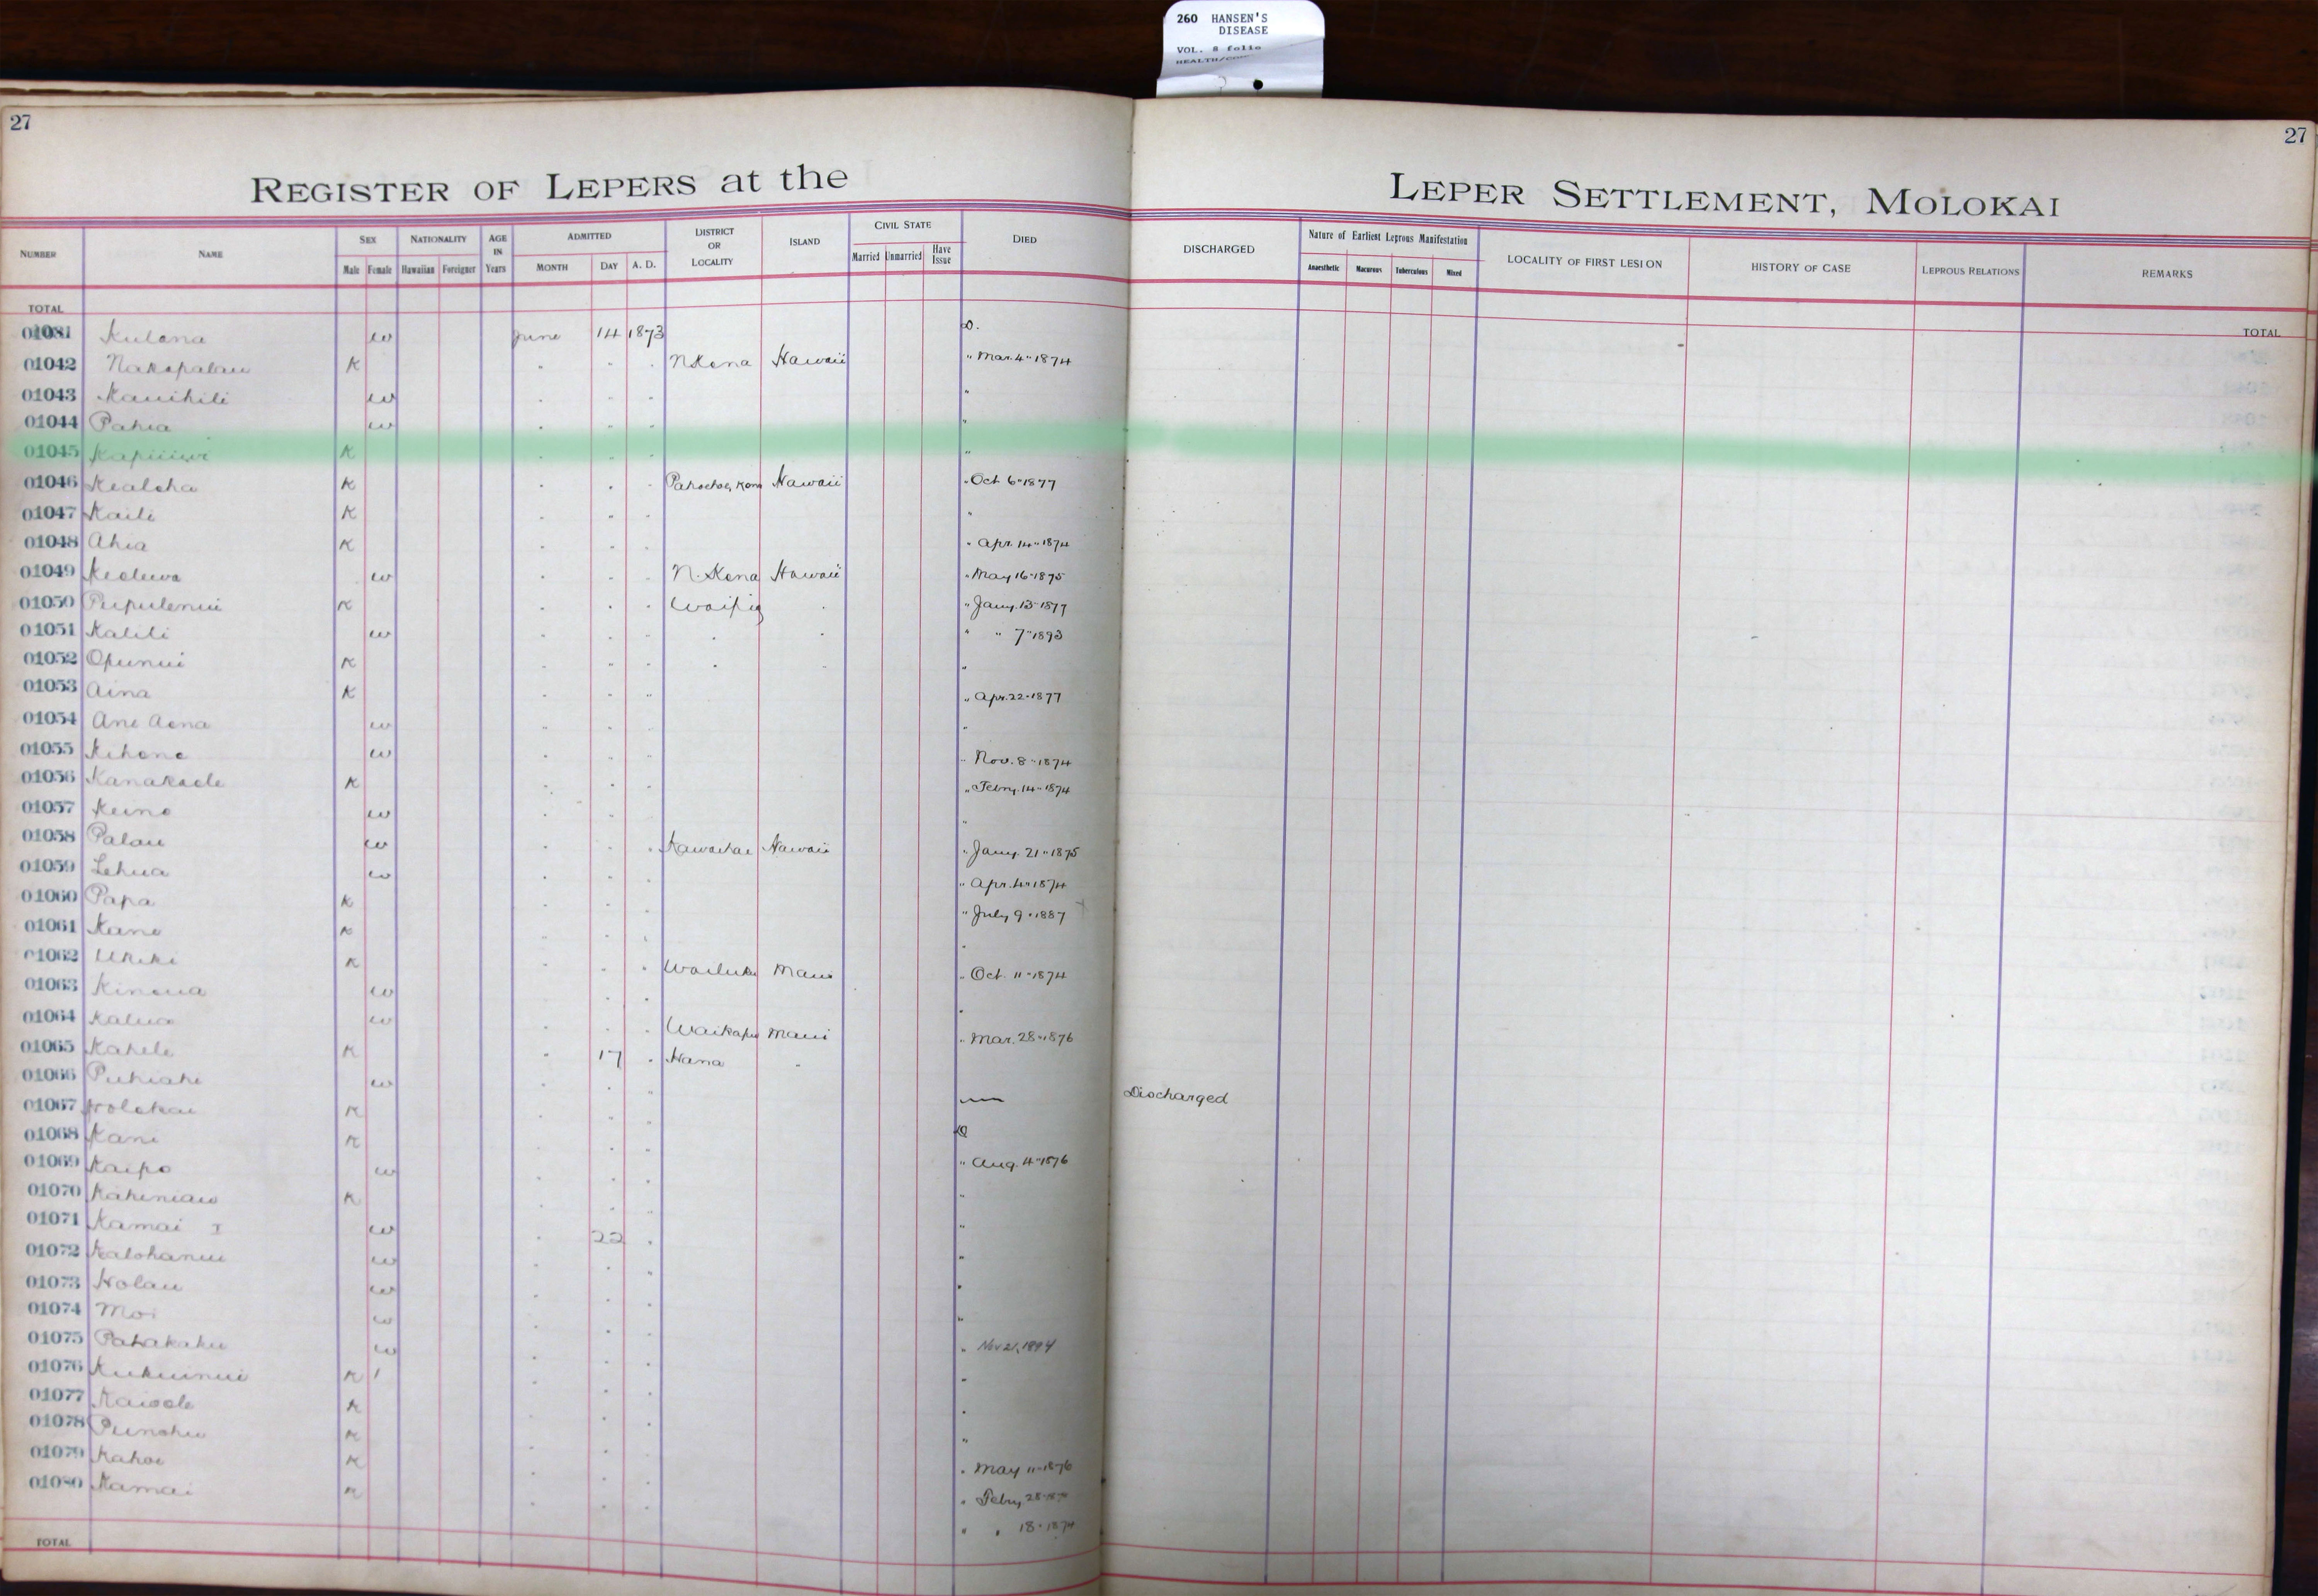 260 HANSEN'S
DISEASE
VOL. 8 folio
27
27
REGISTER OF LEPERS at the LEPER SETTLEMENT, MOLOKAI
NUMBER NAME SEX NATIONALITY AGE IN Years ADMITTED DISTRICT OR LOCALITY ISLAND CIVIL STATE DIED DISCHARGED Nature of Earliest Leprous Manifestation LOCALITY OF FIRST LESION HISTORY OF CASE LEPROUS RELATIONS REMARKS
Male Female Hawaiian Foreigner MONTH DAY A. D. Married Unmarried Have Issue Anaesthetic Macurous Tuberculous Mixed
TOTAL TOTAL
Kulana w June 14 1873 D.
01042 Nakapalau K " " " N Kona Hawaii " Mar. 4" 1874
01043 Kauihili w " " " "
01044 Pahia w " " " "
01045 K " " " "
01046 Kealoha K " " " Hawaii " Oct 6" 1877
01047 Kaili K " " " "
01048 Ahia K " " " " Apr. 14" 1874
01049 w " " " N. Kona Hawaii " May 16" 1875
01050 Pupulenui K " " " " " Jany. 13" 1877
01051 Kalili w " " " " " " " 7" 1893
01052 Opunui K " " " " " "
01053 Aina K " " " " Apr. 22" 1877
01054 Ane Aona w " " " "
01055 Kehena w " " " " Nov. 8" 1874
01056 Kanakaole K " " " " Febry. 14" 1874
01057 Keino w " " " "
01058 Palau w " " " Kawaihae Hawaii " Jany. 21" 1875
01059 Lehua w " " " " Apr. 4" 1874
01060 Papa K " " " " July 9" 1887
01061 Kane K " " " "
01062 Ukeke K " " " Wailuku Maui " Oct. 11" 1874
01063 Kinoua w " " " "
01064 Kalua w " " " Waikapu Maui " Mar. 28" 1876
01065 Kahele K " 17 " Hana "
01066 Puhiahi w " " " Discharged
01067 Holokai K " " " D
01068 Kani K " " " " Aug. 4" 1876
01069 Kaipo w " " " "
01070 Kaheniau K " " " "
01071 Kamai I w " 22 " "
01072 Kalohanui w " " " "
01073 Holau w " " " "
01074 Moi w " " " " Nov 21, 1894
01075 Pahakaku w " " " "
01076 Kukuinui K " " " "
01077 Kaiole K " " " "
01078 Punohu K " " " " May 11" 1876
01079 Kahoe K " " " " Febry 28"
01080 Kamai K " " " " " 18" 1874
TOTAL